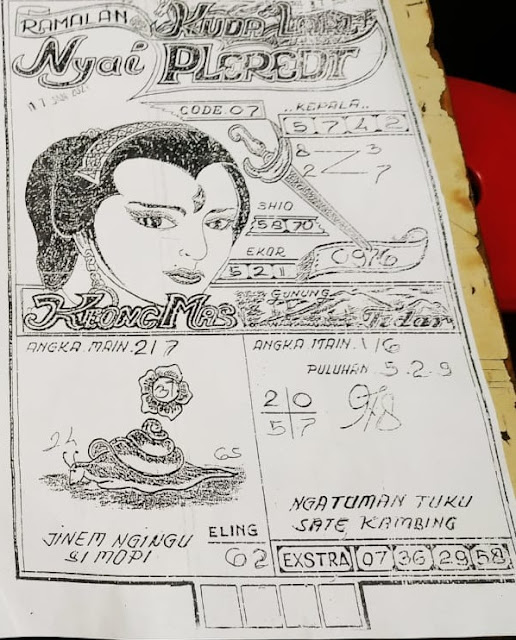 RAMALAN KUDA LARI
Nyai PLEREDT
CODE.07
..KEPALA..
5 7 4 2
8 3
2 7
SHIO
58 70
EKOR
5 2 1
0976
KEONG MAS
GUNUNG
Tidar
ANGKA MAIN.217
ANGKA MAIN.1/6
PULUHAN.5.2.9
3
2 0
5 7
978
24
65
JINEM NGINGU
SI MOPI
ELING
62
NGATUMAN TUKU
SATE KAMBING
EXSTRA 07 36 29 58